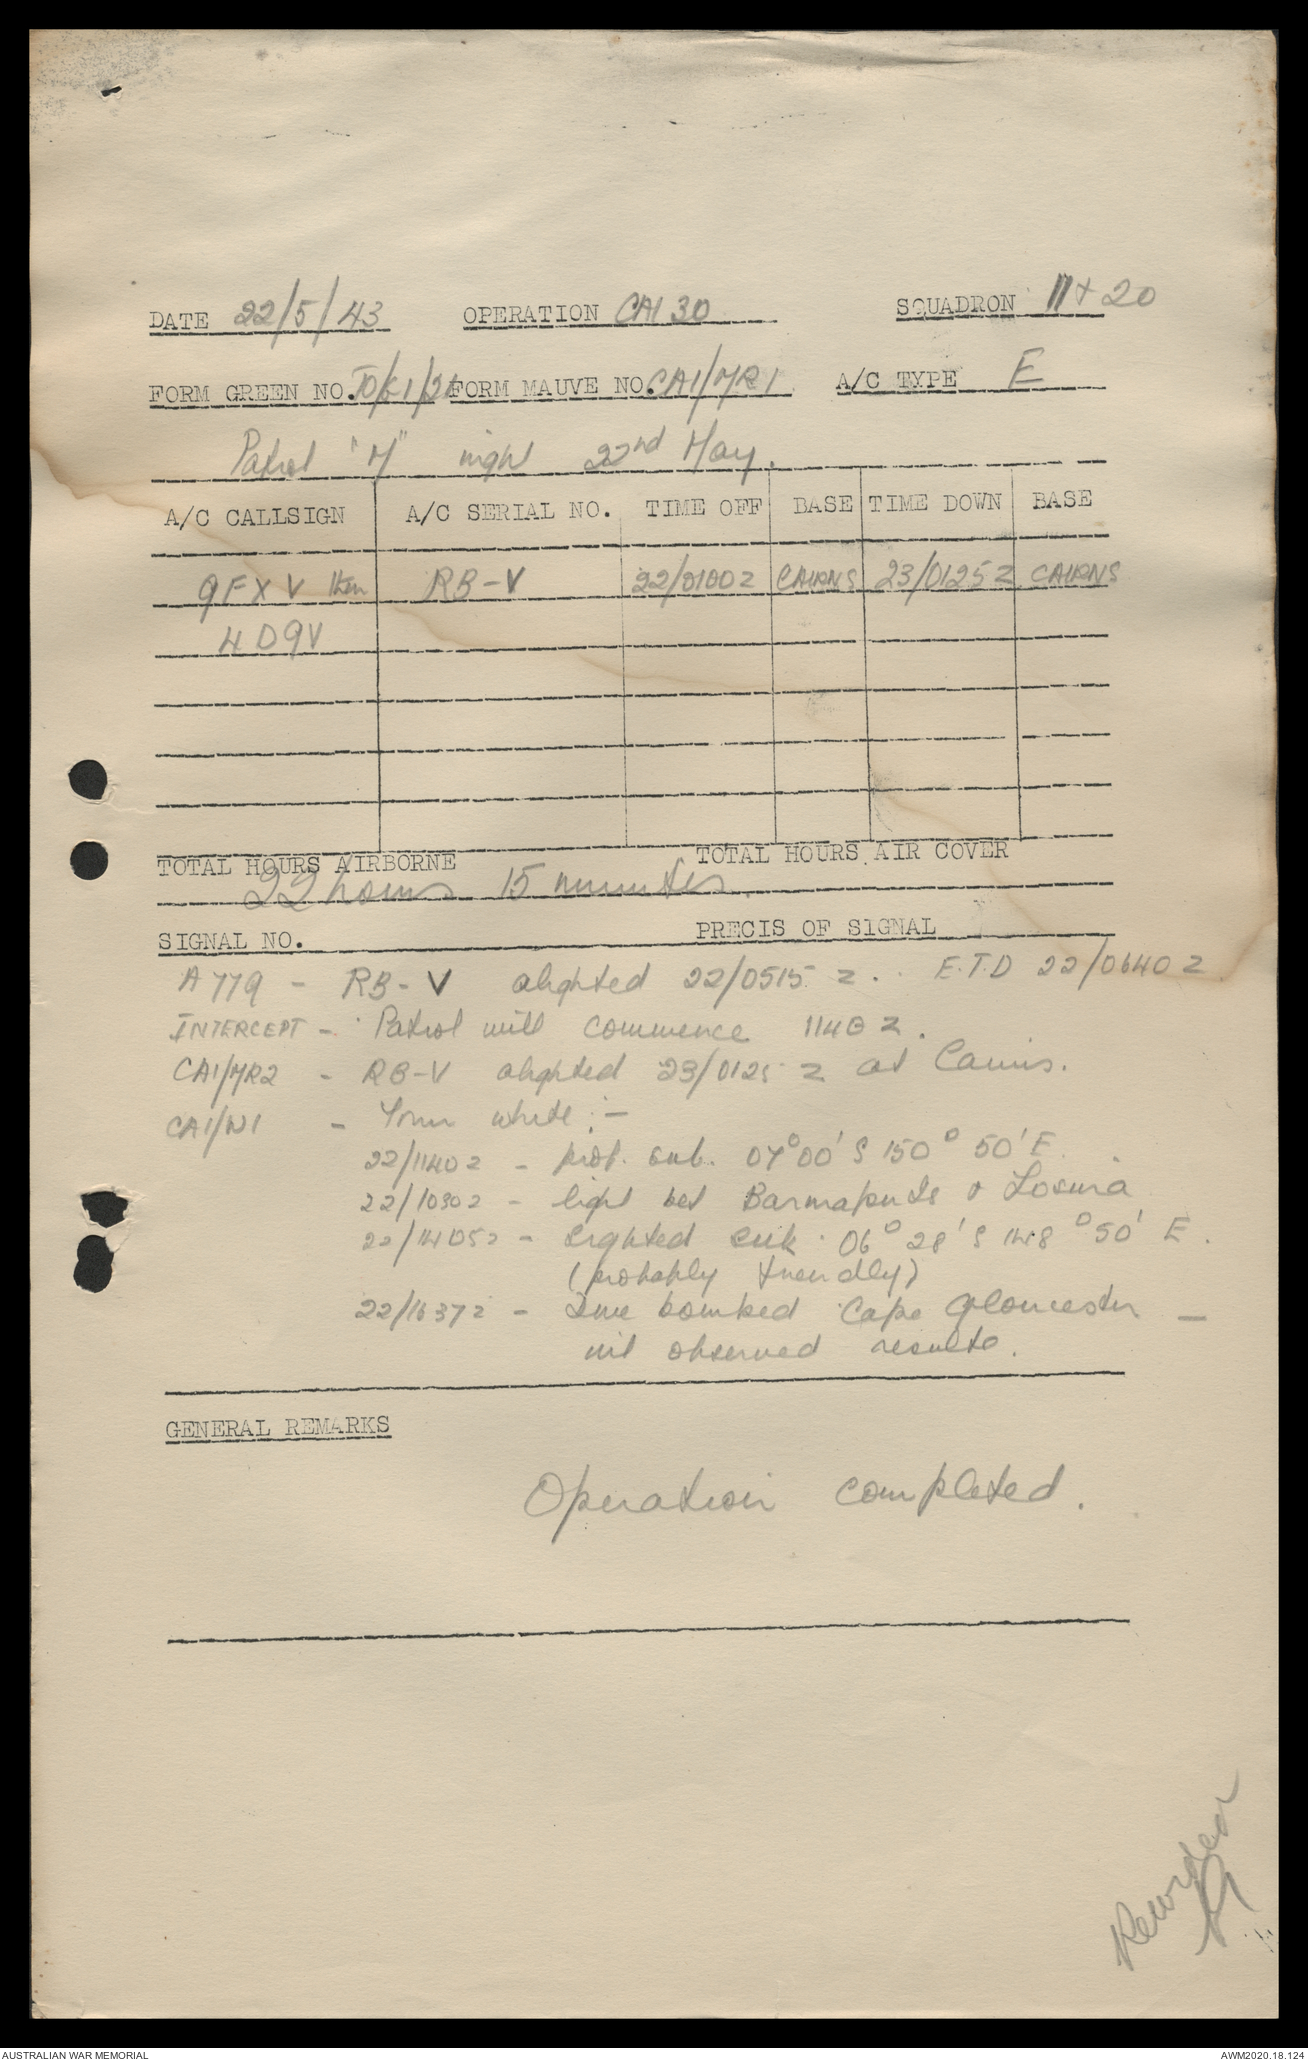 DATE 22/5/43 OPERATION CAI 30 SQUADRON 11 + 20
FORM GREEN NO. FORM MAUVE NO. CA1/MR1 A/C TYPE E
Patrol "M" night 22nd May.
A/C CALLSIGN A/C SERIAL NO. TIME OFF BASE TIME DOWN BASE
9FXV then RB-V 22/0100Z CAIRNS 23/0125Z CAIRNS
4D9V
TOTAL HOURS AIRBORNE TOTAL HOURS AIR COVER
22 hours 15 minutes.
SIGNAL NO. PRECIS OF SIGNAL
A779 - RB-V alighted 22/0515 Z. E.T.D 22/0640Z
INTERCEPT - Patrol will commence 1140Z.
CA1/MR2 - RB-V alighted 23/0125 Z at Cairns.
CA1/W1 - Form white :-
22/1140Z - prob. sub. 07°00'S 150° 50'E.
22/1030Z - light bet & Losuia
22/1405Z - sighted 06° 28'S 148° 50' E.
(probably friendly)
22/1637Z - Dive bombed Cape Gloucester -
nil observed results.
GENERAL REMARKS
Operation completed.
Recorded
AUSTRALIAN WAR MEMORIAL AWM2020.18.124